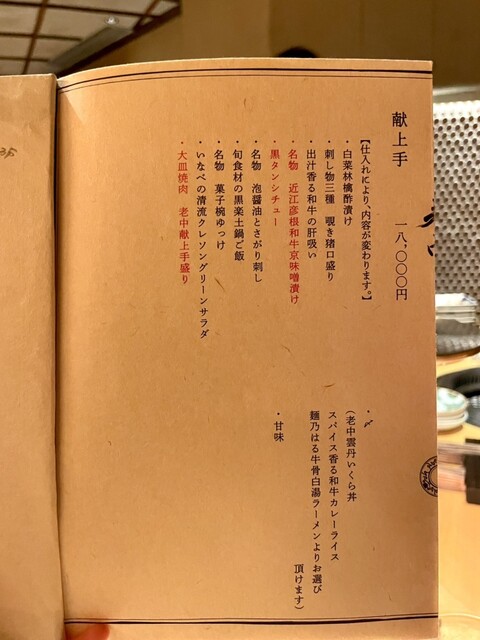 献上手　一八,〇〇〇円
【仕入れにより、内容が変わります。】
・白菜林檎酢漬け
・刺し物三種　覗き猪口盛り
・出汁香る和牛の肝吸い
・名物　近江彦根和牛京味噌漬け
・黒タンシチュー
・名物　泡醤油とさがり刺し
・旬食材の黒楽土鍋ご飯
・名物　菓子椀ゆっけ
・いなべの清流クレソングリーンサラダ
・大皿焼肉　老中献上手盛り
・〆
(老中雲丹いくら丼
スパイス香る和牛カレーライス
麺乃はる牛骨白湯ラーメンよりお選び
頂けます)
・甘味